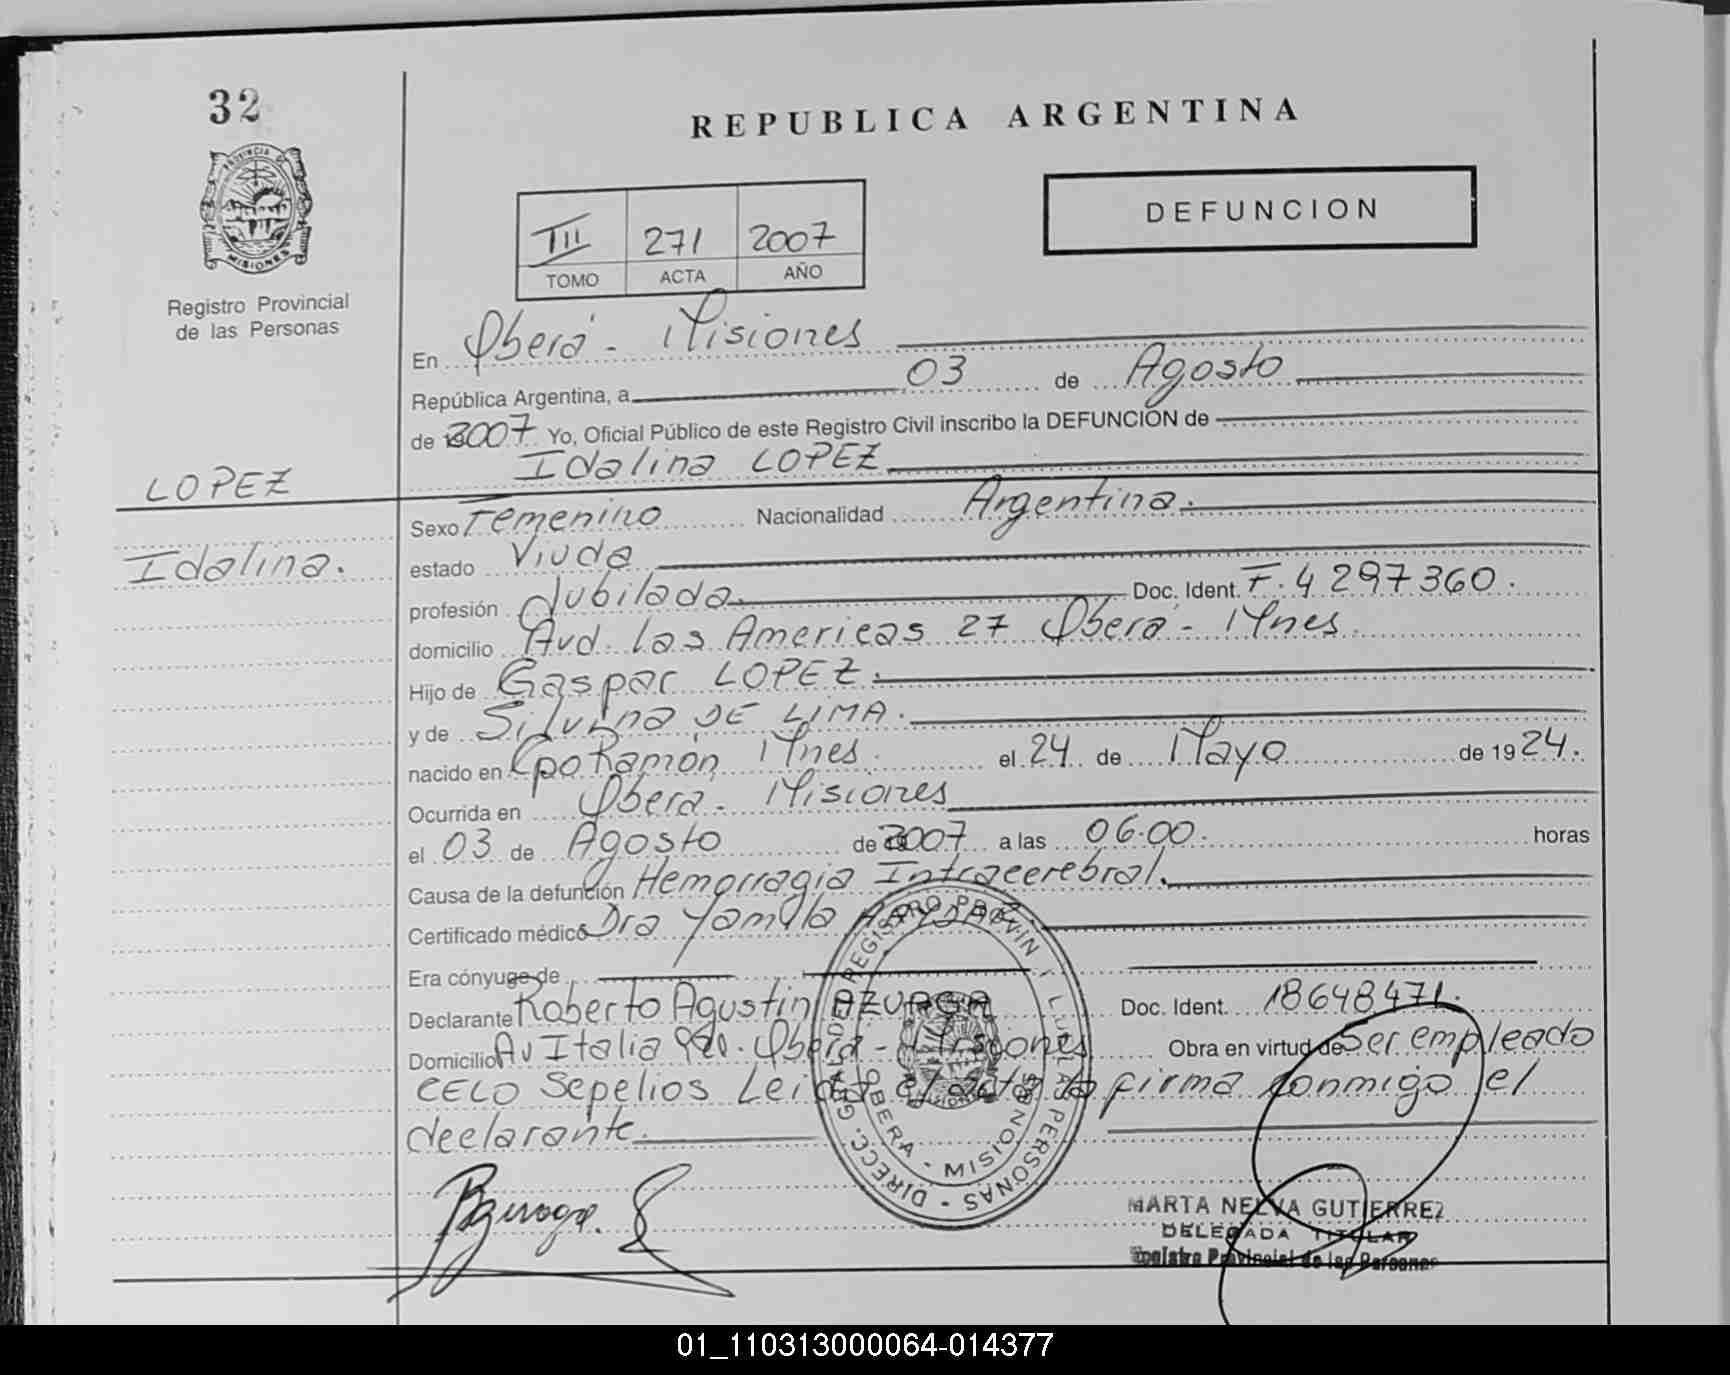 32
PROVINCIA DE
MISIONES
Registro Provincial
de las Personas
REPUBLICA ARGENTINA
III 271 2007
TOMO ACTA AÑO
DEFUNCION
En Oberá - Misiones
República Argentina, a 03 de Agosto
de 2007 Yo, Oficial Público de este Registro Civil inscribo la DEFUNCIÓN de
Idalina LOPEZ
LOPEZ
Idalina.
Sexo Femenino Nacionalidad Argentina.
estado Viuda
profesión Jubilada. Doc. Ident. F. 4297360.
domicilio Avd. las Americas 27 Oberá - Mnes.
Hijo de Gaspar LOPEZ.
y de Silvina DE LIMA.
nacido en Cpo Ramón Mnes. el 24 de Mayo de 1924.
Ocurrida en Oberá - Misiones
el 03 de Agosto de 2007 a las 06.00. horas
Causa de la defunción Hemorragia Intracerebral.
Certificado médico Dra Yamila
Era cónyuge de
Declarante Roberto Agustin AZUAGA Doc. Ident. 18648471.
Domicilio Av Italia Oberá - Misiones Obra en virtud de Ser empleado
CELO Sepelios Leida el acta la firma conmigo el
declarante.
DIRECC. GRAL. DE REGISTRO PROVIN PERSONAS
OBERA - MISIONES
MARTA NELVA GUTIERREZ
DELEGADA TITULAR
Registro Provincial de las Personas
01_110313000064-014377